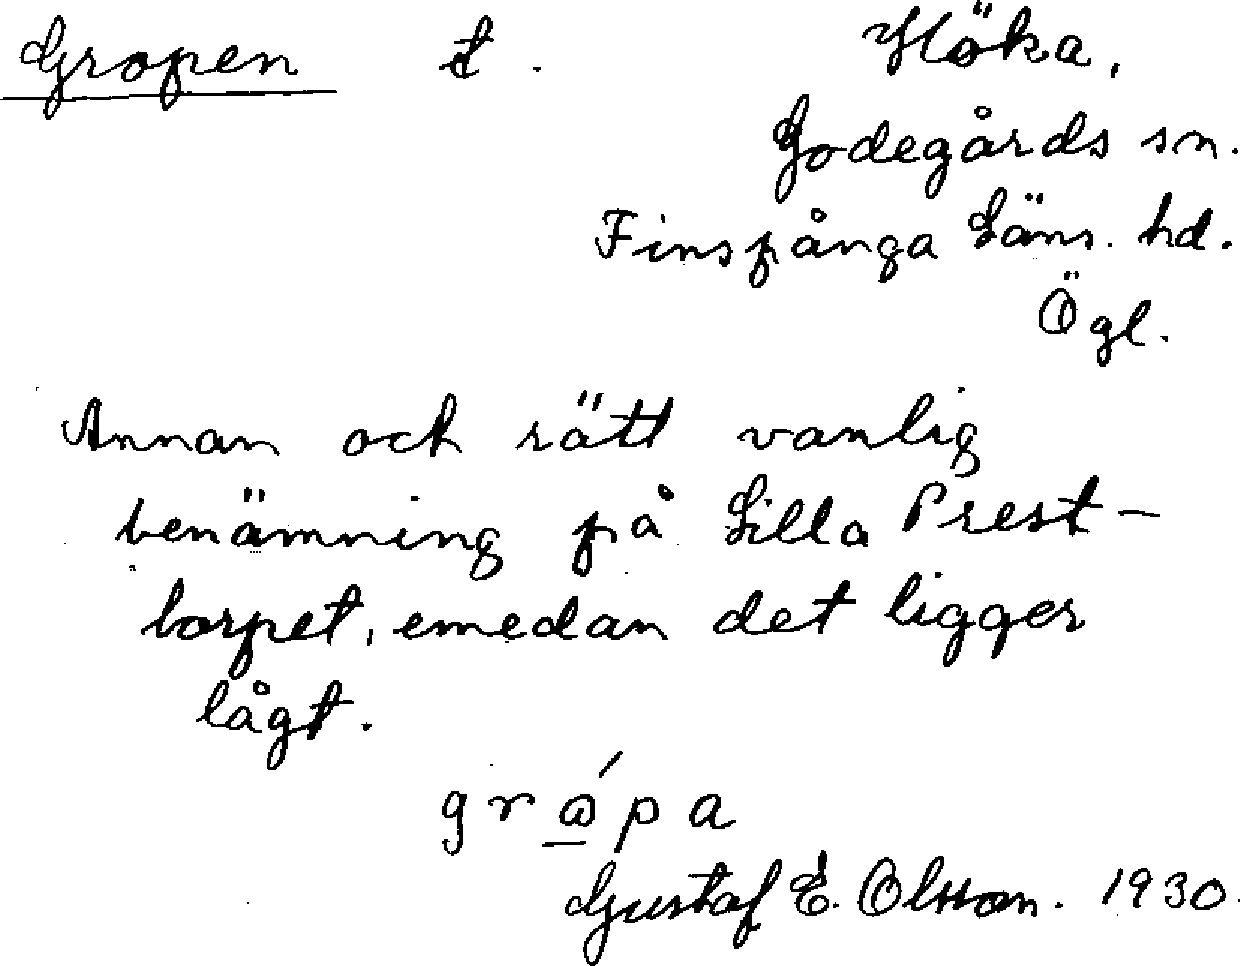 Gropen t. Höka,
Godegårds sn.
Finspånga Läns. hd.
Ögl.
Annan och rätt vanlig
benämning på Lilla Prest-
torpet, emedan det ligger
lågt.
gråpa
Gustaf E. Olsson. 1930.